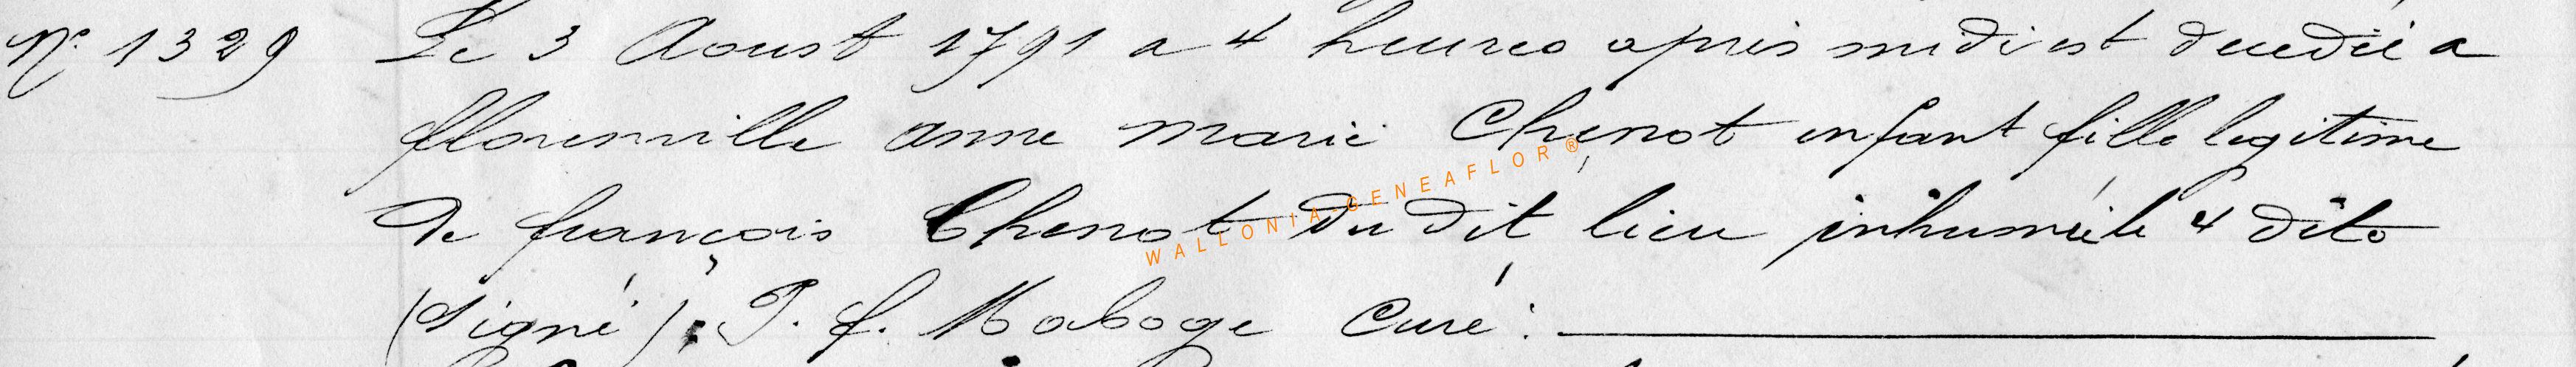 N° 1329 Le 3 Aoust 1791 a 4 heures apres midi est decedée a
florenville anne marie Chenot enfant fille legitime
De françois Chenot du dit lieu inhumée le 4 dito
(signé) J. f. Maboge Curé.
WALLONIA-GENEAFLOR®